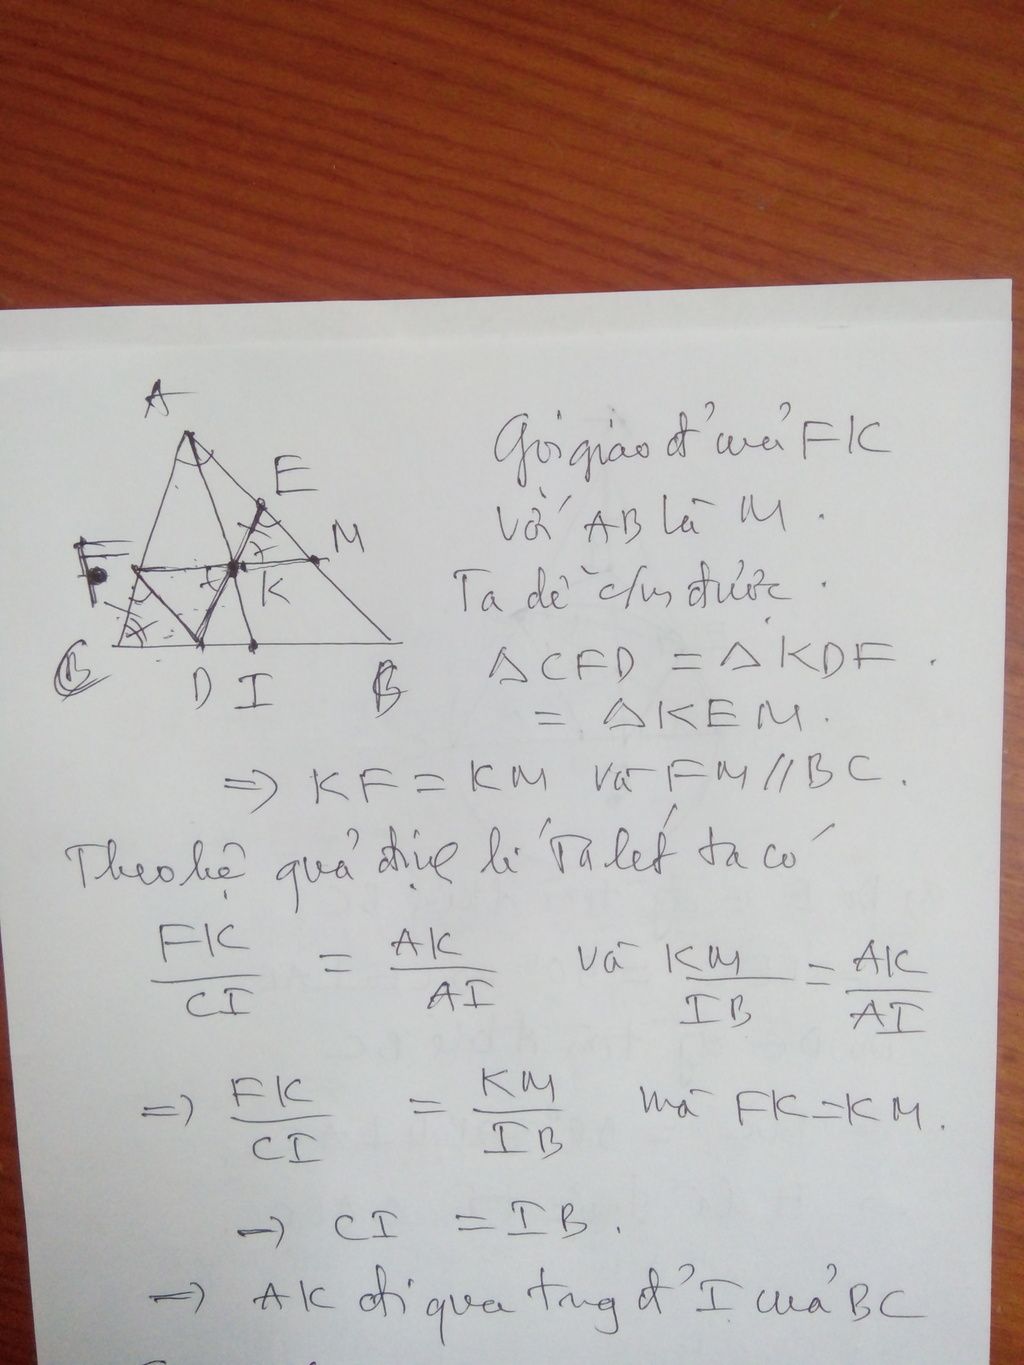 A
E
M
F
K
C
D I B
Gọi giao đ' của FK
với AB là M.
Ta dễ c/m được.
△CFD = △KDF.
= △KEM.
=> KF = KM và FM // BC.
Theo hệ quả định lí Talét ta có
FK/CI = AK/AI và KM/IB = AK/AI
=> FK/CI = KM/IB mà FK = KM.
-> CI = IB.
-> AK đi qua trung đ' I của BC